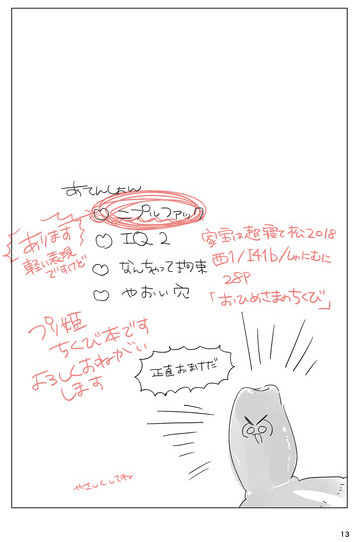 あてんしょん
♡ ニプルファック
♡ IQ2
♡ なんちゃって拘束
♡ やおい穴
あります
軽い表現
ですけど
家宝は超寝て松2018
西1/I41b/しゃにむに
28P
「おひめさまのちくび」
プリ姫
ちくび本です
よろしくおねがい
します
正直おまけだ
やさしくしてね
13